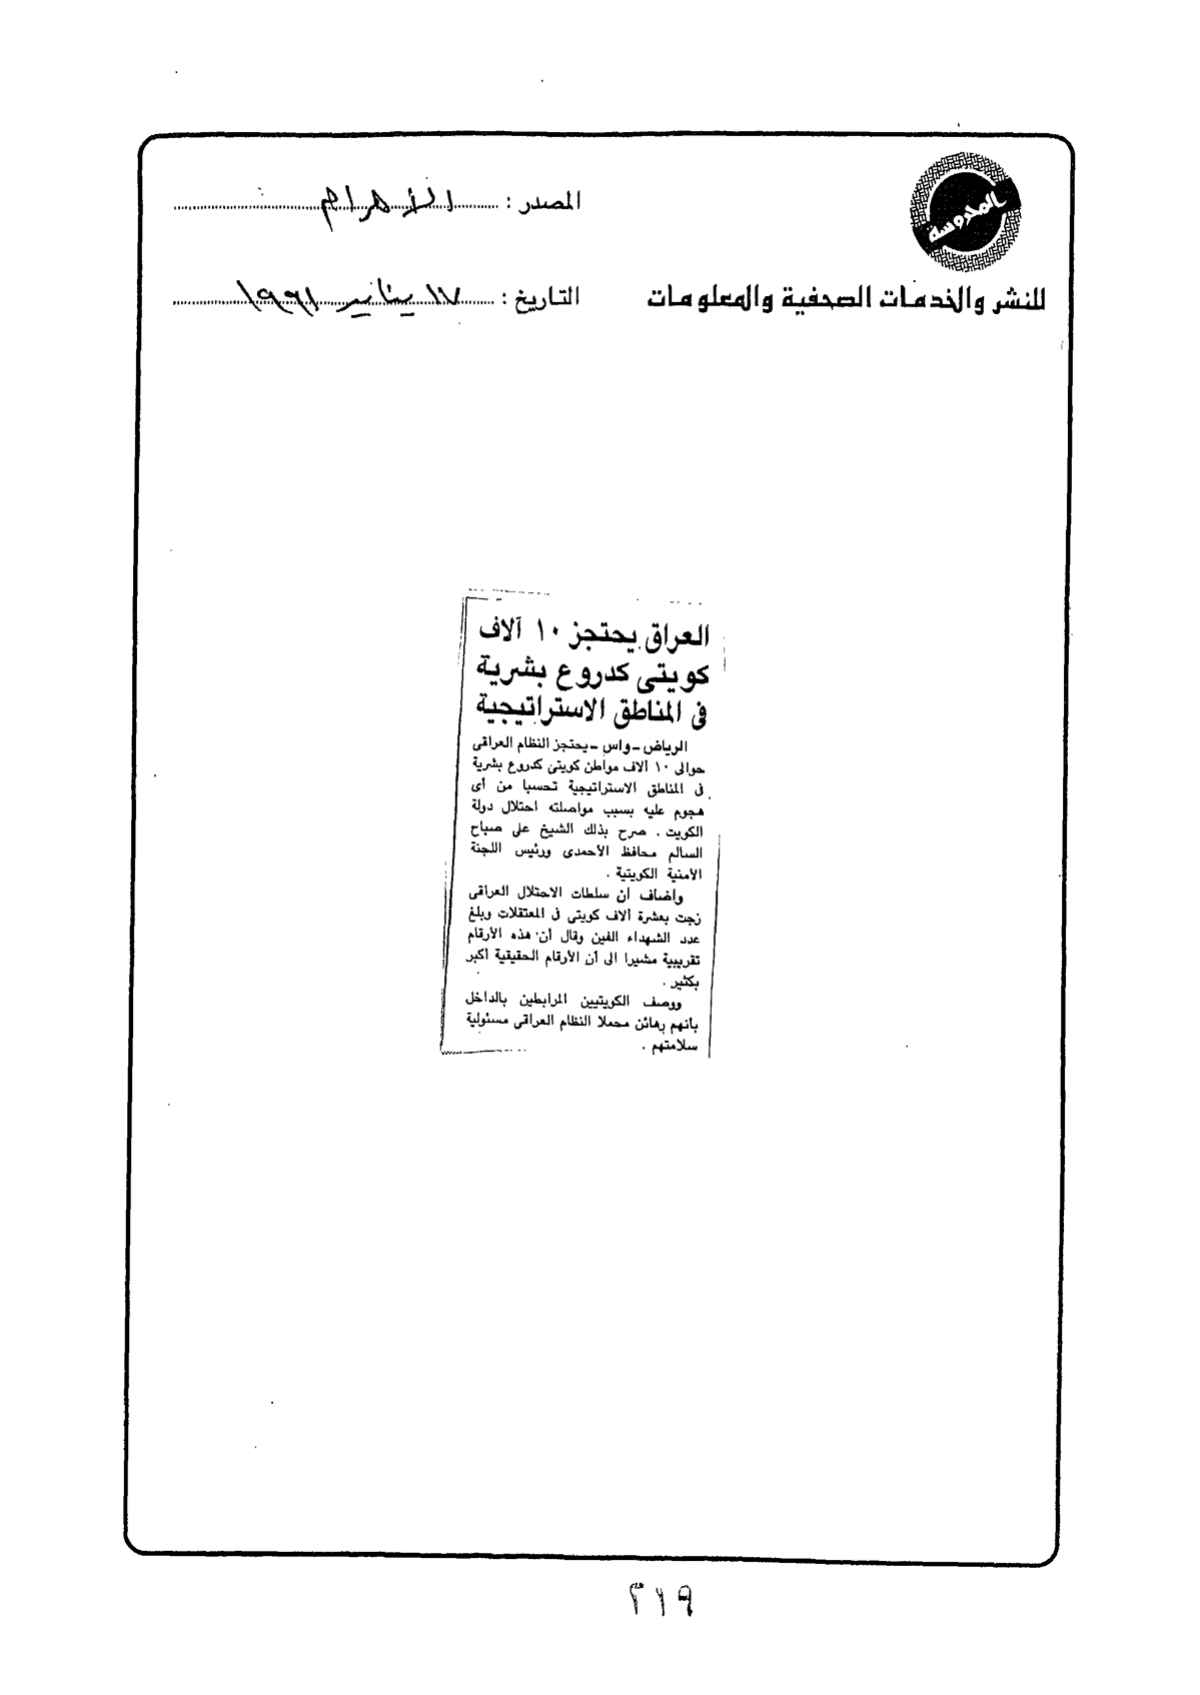 المحروسة
للنشر والخدمات الصحفية والمعلومات
المصدر : الأهرام
التاريخ : ١٧ يناير ١٩٩١
العراق يحتجز ١٠ آلاف
كويتى كدروع بشرية
فى المناطق الاستراتيجية
الرياض - واس - يحتجز النظام العراقى
حوالى ١٠ آلاف مواطن كويتى كدروع بشرية
فى المناطق الاستراتيجية تحسبا من أى
هجوم عليه بسبب مواصلته احتلال دولة
الكويت . صرح بذلك الشيخ على صباح
السالم محافظ الأحمدى ورئيس اللجنة
الامنية الكويتية .
واضاف ان سلطات الاحتلال العراقى
زجت بعشرة آلاف كويتى فى المعتقلات وبلغ
عدد الشهداء الفين وقال أن هذه الأرقام
تقريبية مشيرا الى أن الأرقام الحقيقية اكبر
بكثير .
ووصف الكويتيين المرابطين بالداخل
بانهم رهائن محملا النظام العراقى مسئولية
سلامتهم .
٢١٩